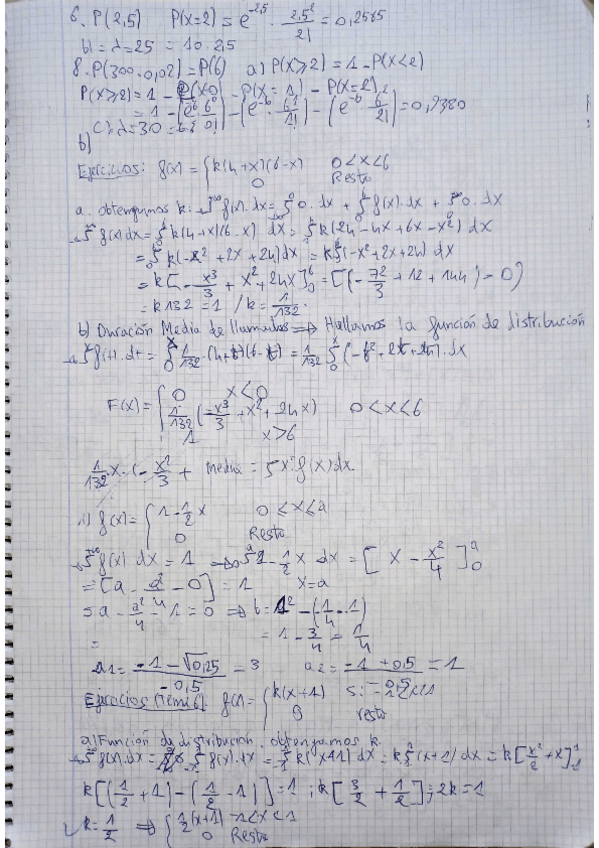 6. P(2,5)   P(x=2) = e^-2,5 · 2,5²/2! = 0,2565
b) = λ=25 = 10·2,5
8. P(300·0,02) = P(6)   a) P(x≥2) = 1 - P(x<2)
P(x≥2) = 1 - P(x=0) - P(x=1) - P(x=2)
= 1 - (e^-6 6⁰/0!) - (e^-6 · 6¹/1!) - (e^-6 6²/2!) = 0,9380
c) λ=30 =
b)
Ejercicios: f(x) = { k(4+x)(6-x)   0<x<6
0   Resto
a. obtengamos k: ∫f(x)·dx = ∫0·dx + ∫f(x)·dx + ∫0·dx
∫f(x)dx = ∫k(4+x)(6-x) dx = ∫k(24-4x+6x-x²) dx
= ∫k(-x²+2x+24)dx = k∫(-x²+2x+24) dx
= k[-x³/3 + x² + 24x]₀⁶ = [(-72/3 + 12 + 144) - 0)
= k132 = 1 / k = 1/132
b) Duración Media de llamadas => Hallamos la función de distribución
F(x) = { 0   x<0
1/132 (-x³/3 + x² + 24x)   0<x<6
1   x>6
1/132 x · (-x²/3 +   Media = ∫x·f(x)dx
f(x) = { 1 - 1/2 x   0≤x≤a
0   Resto
∫f(x) dx = 1 -> ∫1 - 1/2 x dx = [x - x²/4]₀ᵃ
= [a - a²/4 - 0] = 1   x=a
a - a²/4 - 1 = 0 => b = 1² - (-1/4 · -1)
= 1 - 3/4 = 1/4
a1 = (-1 - √0,25)/-0,5 = 3   a2 = (-1 + 0,5)/-0,5 = 1
Ejercicios (Tema 6): f(x) = { k(x+1)   si -1≤x≤1
0   resto
a) Función de distribución. obtengamos k
∫f(x)·dx = ∫f(x)·dx = ∫k(x+1) dx = k∫(x+1) dx = k[x²/2 + x]
k[(1/2 + 1) - (1/2 - 1)] = 1 ; k[3/2 + 1/2] ; 2k = 1
k = 1/2 => { 1/2 (x+1) -1<x<1
0   Resto